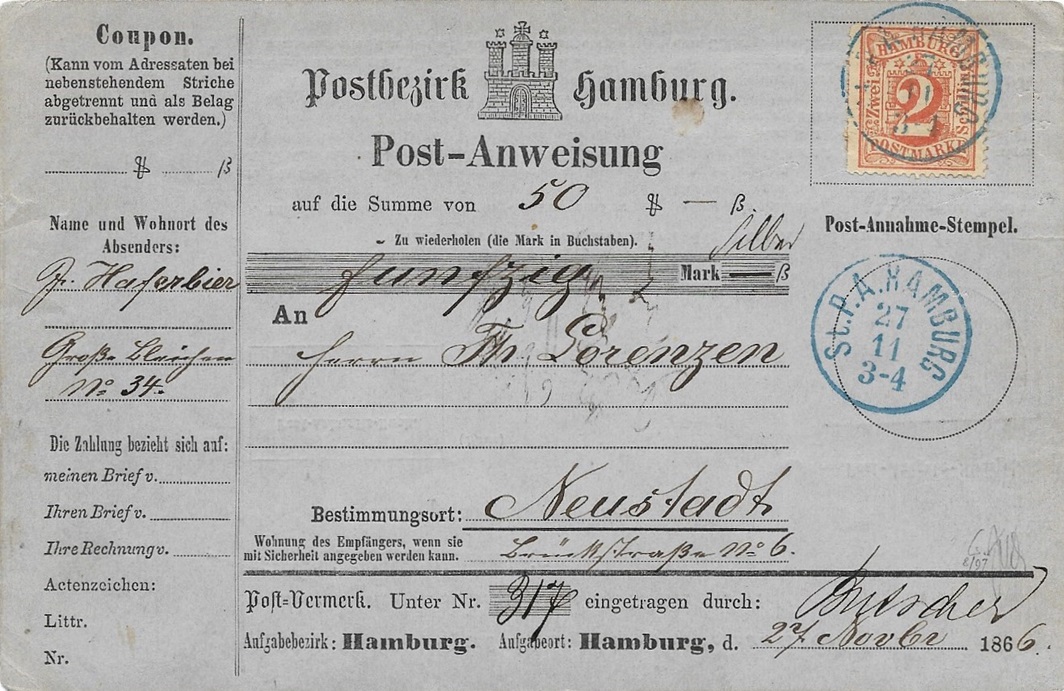 Coupon.
(Kann vom Adressaten bei
nebenstehendem Striche
abgetrennt und als Belag
zurückbehalten werden.)
ß
Name und Wohnort des
Absenders:
Fr. Haferbier
Große Bleichen
No 34.
Die Zahlung bezieht sich auf:
meinen Brief v.
Ihren Brief v.
Ihre Rechnung v.
Actenzeichen:
Littr.
Nr.
Postbezirk Hamburg.
Post-Anweisung
auf die Summe von 50 — ß.
Zu wiederholen (die Mark in Buchstaben). Silber
funfzig Mark — ß
An
Herrn Th. Lorenzen
Bestimmungsort: Neustadt
Wohnung des Empfängers, wenn sie
mit Sicherheit angegeben werden kann.
Brückstraße No 6.
Post=Vermerk. Unter Nr. 317 eingetragen durch:
Aufgabebezirk: Hamburg. Aufgabeort: Hamburg, d. 27 Novbr 1866.
HAMBURG
Zwei
2
Schilling
POSTMARKE
HAMBURG
27
11
3-4
Post-Annahme-Stempel.
St.P.A. HAMBURG
27
11
3-4